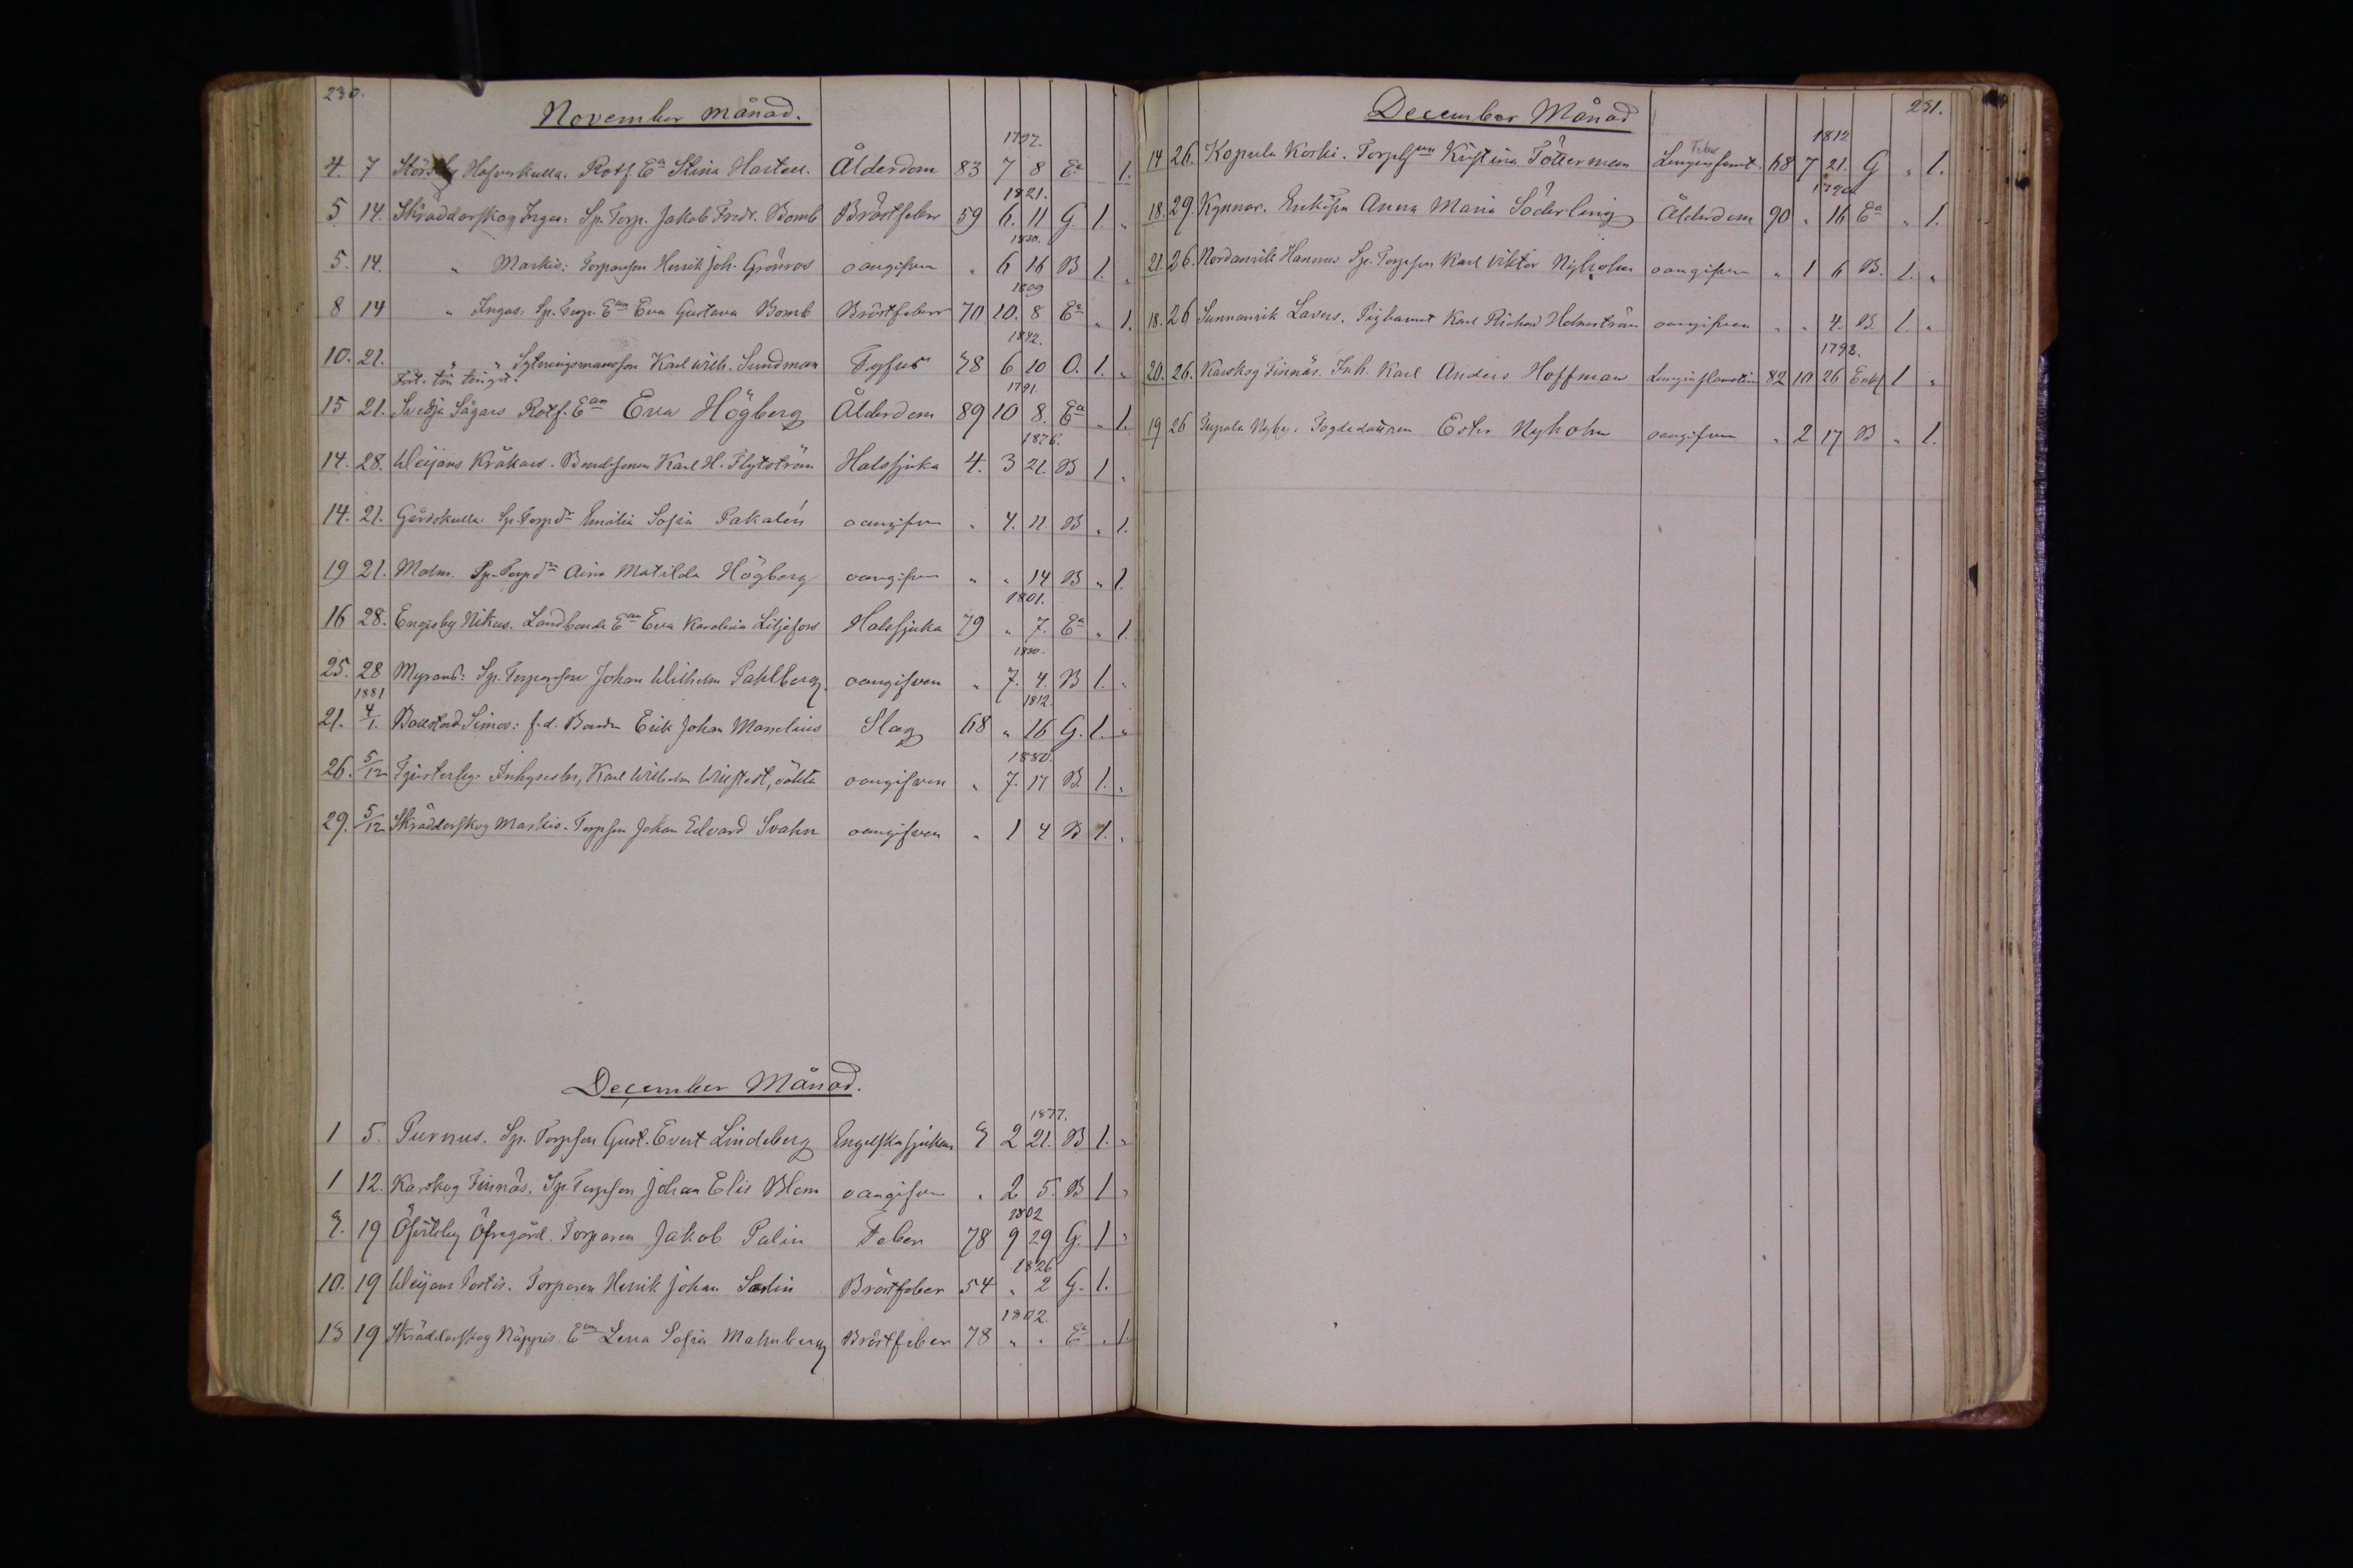 230.
November månad.
1797.
4. 7 Hofverskulla. Rotf. Ea Stina Hartell. Ålderdom 83 7 8 Ea 1.
1821.
5 14. Skräddarskog Ingas: Sp. Torp. Jakob Fredr. Bomb Bröstfeber 59 6. 11 G. 1. "
1880.
5. 14. " Markis: Torparson Henrik Joh. Grönros oangifven " 6 16 B 1. "
1809
8 14 " Ingas: Sp. Torp. Ean Eva Gustava Bomb Bröstfeber 70 10. 8 Ea " 1.
1842.
10. 21. " " Karl Wilh. Sundman Tyfus 38 6 10 O. 1. "
1791.
15 21. Svedja Sågars Rotf. Ean Eva Högberg Ålderdom 89 10 8. Ea " 1.
1876.
14. 28. Weijans Kråkars. Bondesonen Karl H. Flytström Halssjuka 4. 3 21. B 1 "
14. 21. Gårdskulla: Sp. Torp dr Emilia Sofia Pakalén oangifven " 4. 11. B " 1.
19 21. Malm. Sp. Torp dr Aina Matilda Högberg oangifven " " 14 B " 1.
1801.
16 28. Engisby Nikus. Landbonde Ean Eva Karolina Liljefors Halssjuka 79 " 7. Ea " 1.
1880.
25. 28 Myrans: Sp. Torparson Johan Wilhelm Pahlberg. oangifven " 7. 4. B 1. "
1881 1812.
21. 4/1. Simos: f.d. Bonden Erik Johan Manelius Slag 68 " 16 G. 1. "
1880.
26. 5/12 Karl Wilhelm oäkta oangifven " 7. 17 B 1. "
29. 5/12 Skräddarskog Markis. Torpson Johan Edvard Svahn oangifven " 1 4 B 1. "
December Månad.
1877.
1 5. Purnus. Sp. Torpson Gust. Evert Lindeberg Engelska sjukan 3 2 21. B 1. "
1 12. Karskog Finnäs. Sp. Torpson Johan Elis Blom oangifven " 2 5. B 1 "
1802
3. 19 Öfvitsby Öfvergård. Torparen Jakob Palin Feber 78 9 29 G. 1 "
1826
10. 19 Weijans Portis. Torparen Henrik Johan Sarlin Bröstfeber 54 " 2 G. 1.
1802.
13 19 Skräddarskog Näppis. Ean Lena Sofia Malmberg Bröstfeber 78 " " Ea " 1.
December Månad
231.
1812
14 26. Kopula Koski. Kristina Tötterman Lungsfeber 68 7 21. G " 1.
1790
18. 29. Kynnar. Enkan Anna Maria Söderling Ålderdom 90 " 16 Ea " 1.
21. 26. Nordanvik Hannus Sp. Torpson Karl Viktor Nyholm oangifven " 1 6 B. 1. "
18. 26 Sunnanvik Lavers. Pigbarnet Karl Richard Holmström oangifven " " 4. B. 1. "
1798.
20. 26. Karskog Finnäs. Inh. Karl Anders Hoffman 82 10 26 Enkl 1 "
19 26 Nyby. Ester Nyholm oangifven " 2 17 B " 1.